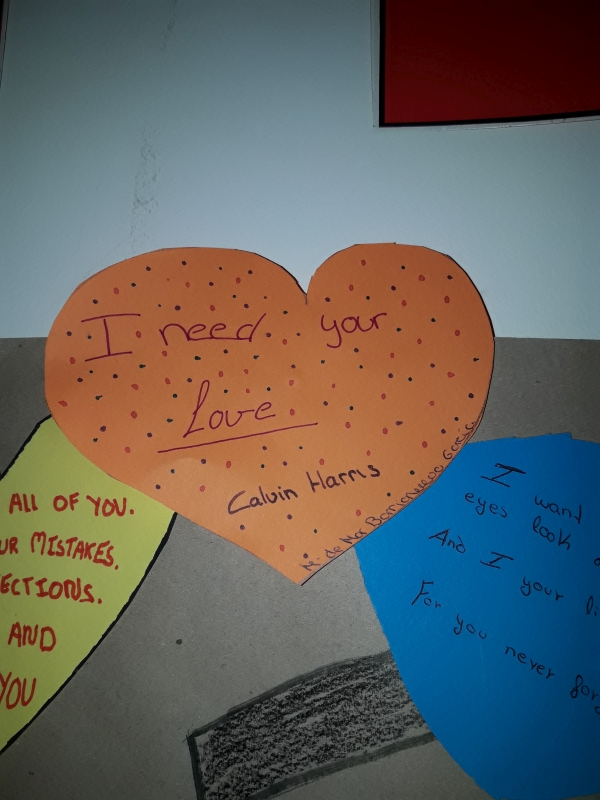 I need your
Love
Calvin Harris
Mª de Mar
García
ALL OF YOU.
UR MISTAKES.
ECTIONS.
AND
YOU
I want
eyes look
And I your li
For you never for